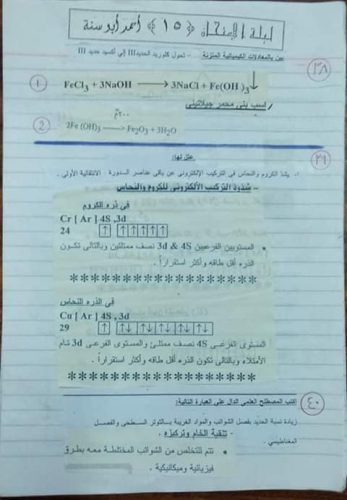 ليلة الامتحان (١٥) أحمد أبو سنة
٣٨
عبر بالمعادلات الكيميائية المتزنة - تحول كلوريد الحديد III إلي أكسيد حديد III
1 FeCl3 + 3NaOH → 3NaCl + Fe(OH)3↓
راسب بني محمر جيلاتيني
2 2Fe(OH)3 → Fe2O3 + 3H2O
٣٩
علل:
يشذ الكروم والنحاس في التركيب الإلكتروني عن باقي عناصر السلسلة الانتقالية الأولي.
– شذوذ التركيب الالكتروني للكروم والنحاس
في ذره الكروم
Cr [ Ar ] 4S , 3d
24 ↑ ↑ ↑ ↑ ↑ ↑
• المستويين الفرعيين 4S & 3d نصف ممتلئين وبالتالي تكون
الذره أقل طاقه وأكثر استقراراً.
********************
في الذره النحاس
Cu [ Ar ] 4S , 3d
29 ↑ ↑↓ ↑↓ ↑↓ ↑↓ ↑↓
المستوى الفرعى 4S نصف ممتلئ والمستوى الفرعى 3d تام
الأمتلاء وبالتالى تكون الذره أقل طاقه وأكثر استقراراً.
********************
٤٠
اكتب المصطلح العلمي الدال علي العبارة التالية:
زيادة نسبة الحديد بفصل الشوائب والمواد الغريبة بالتوتر السطحي والفصل
المغناطيسي.
- تنقية الخام وتركيزه
• تتم للتخلص من الشوائب المختلطة معه بطرق
فيزيائية وميكانيكية.